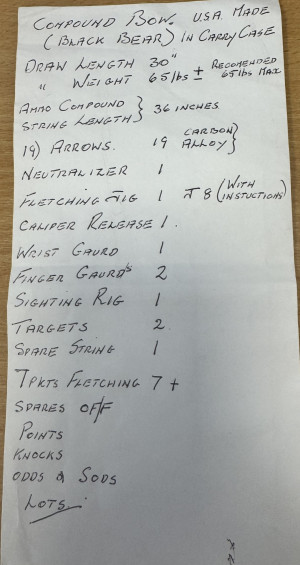 COMPOUND BOW. U.S.A. MADE
(BLACK BEAR) IN CARRY CASE
DRAW LENGTH 30"
" WEIGHT 65lbs ± RECOMENDED 65lbs MAX
AMMO COMPOUND STRING LENGTH } 36 INCHES
19) ARROWS. 19 CARBON ALLOY }
NEUTRALIZER 1
FLETCHING JIG 1 T 8 (WITH INSTUCTIONS)
CALIPER RELEASE 1.
WRIST GAURD 1
FINGER GAURD'S 2
SIGHTING RIG 1
TARGETS 2
SPARE STRING 1
7PKTS FLETCHING 7 +
SPARES OFF
POINTS
KNOCKS
ODDS & SODS
LOTS.